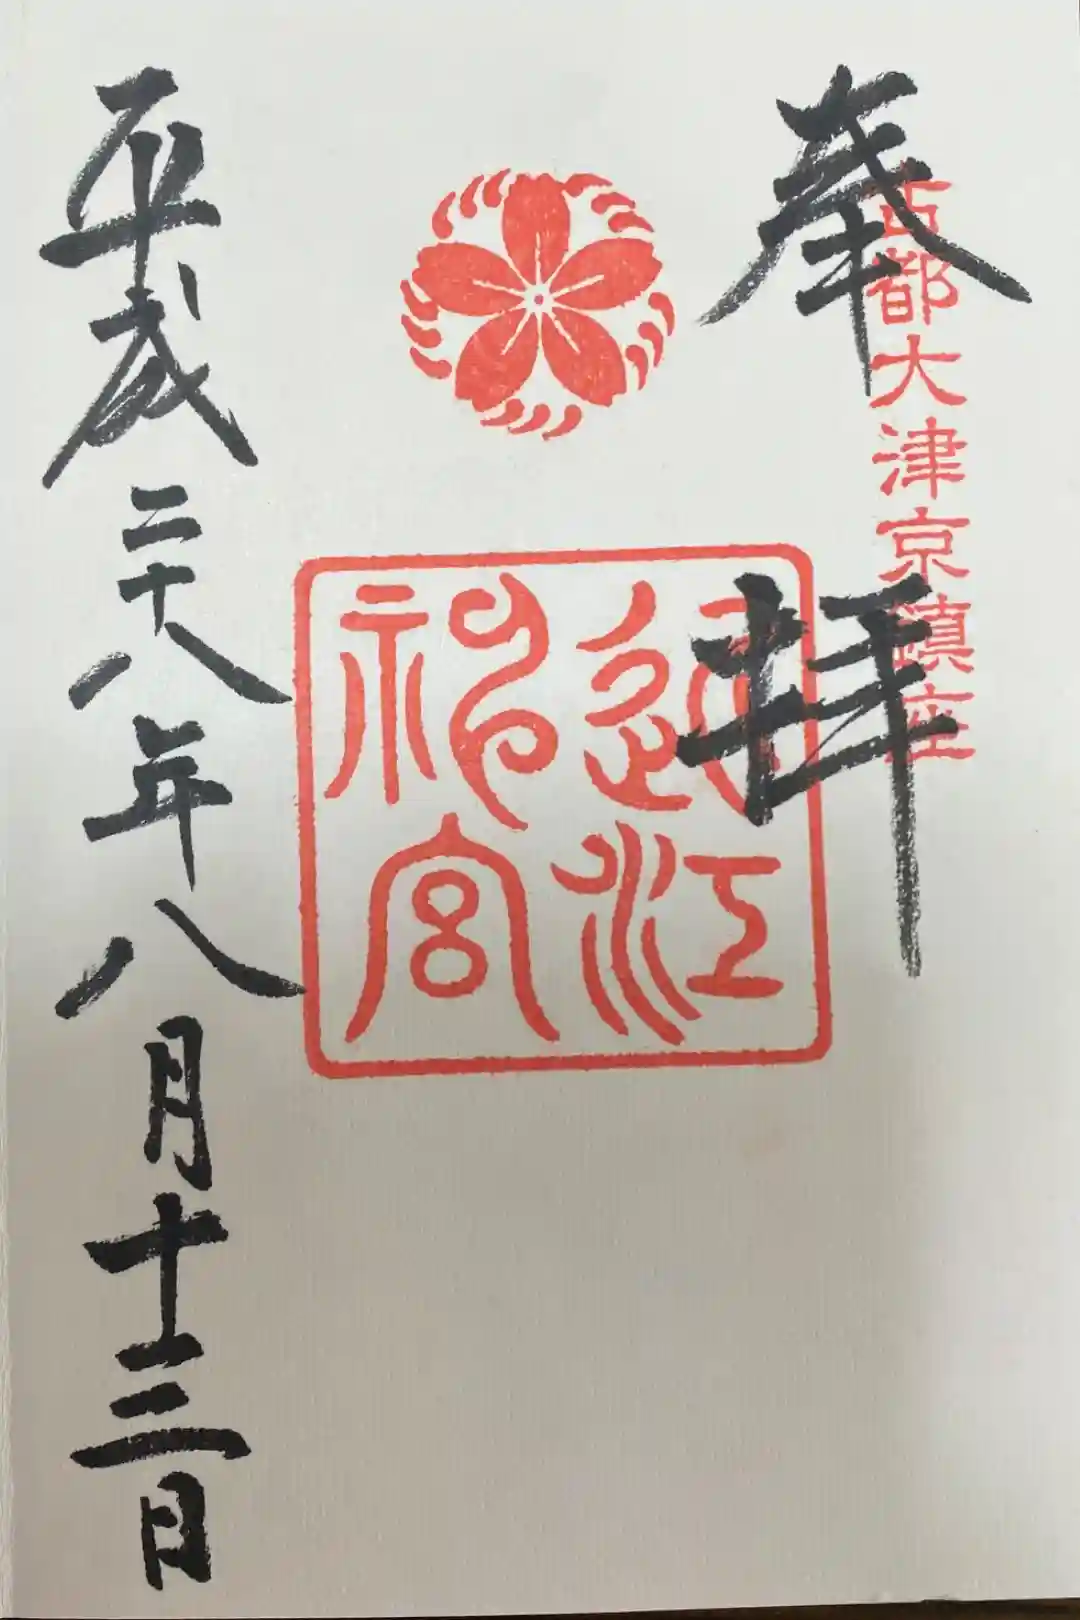 奉拝
古都大津京鎮座
近江
神宮
平成二十八年八月十三日